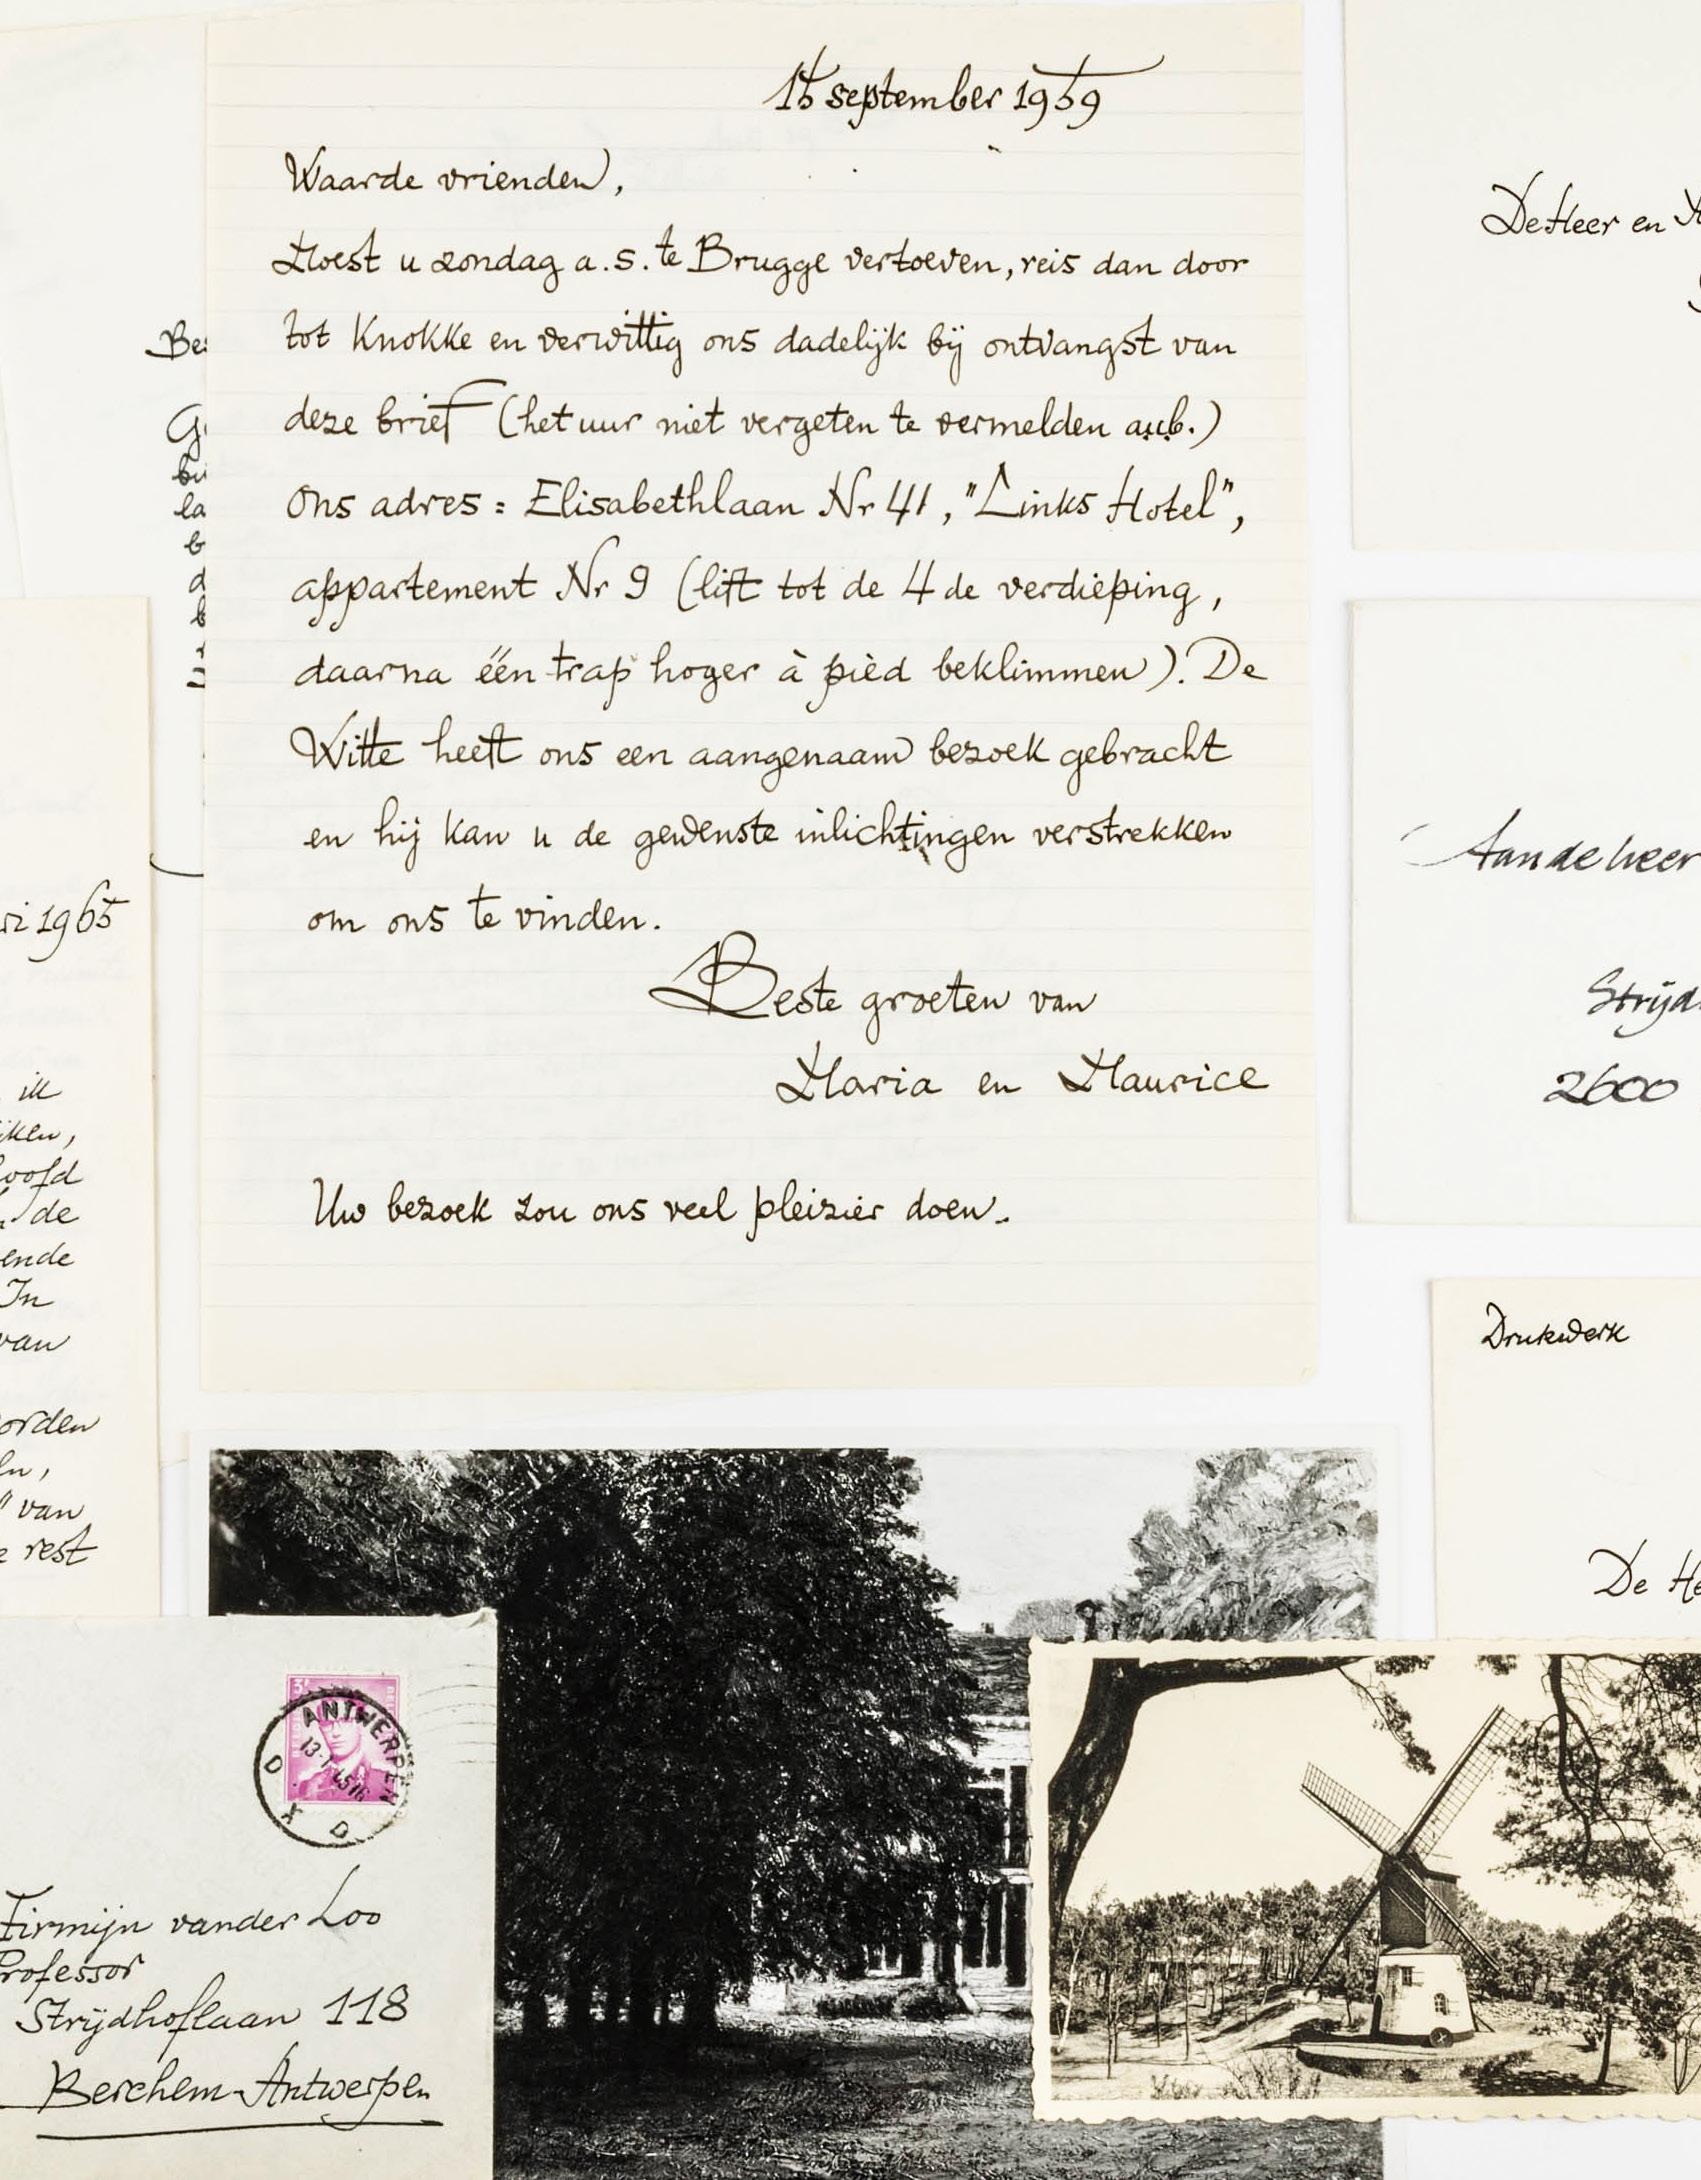 15 september 1959
Waarde vrienden,
Moest u zondag a.s. te Brugge vertoeven, reis dan door
tot Knokke en verwittig ons dadelijk bij ontvangst van
deze brief (het uur niet vergeten te vermelden aub.)
Ons adres = Elisabethlaan Nr 41, "Links Hotel",
appartement Nr 9 (lift tot de 4de verdieping,
daarna één trap hoger à pièd beklimmen). De
Witte heeft ons een aangenaam bezoek gebracht
en hij kan u de gewenste inlichtingen verstrekken
om ons te vinden.
Beste groeten van
Maria en Maurice
Uw bezoek zou ons veel pleizier doen.
Bes
la
b
d
b
ri 1965
ik
ijken,
hoofd
de
ende
In
van
orden
en,
" van
e rest
De Heer en
Aan de heer
Strijd
2600
Drukwerk
De He
3F
ANTWERPEN
13-1
D X D
Firmijn vander Loo
Professor
Strijdhoflaan 118
Berchem-Antwerpen